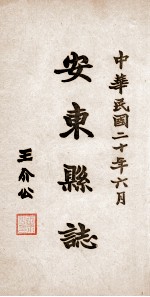 中華民國二十年六月
安東縣誌
王介公